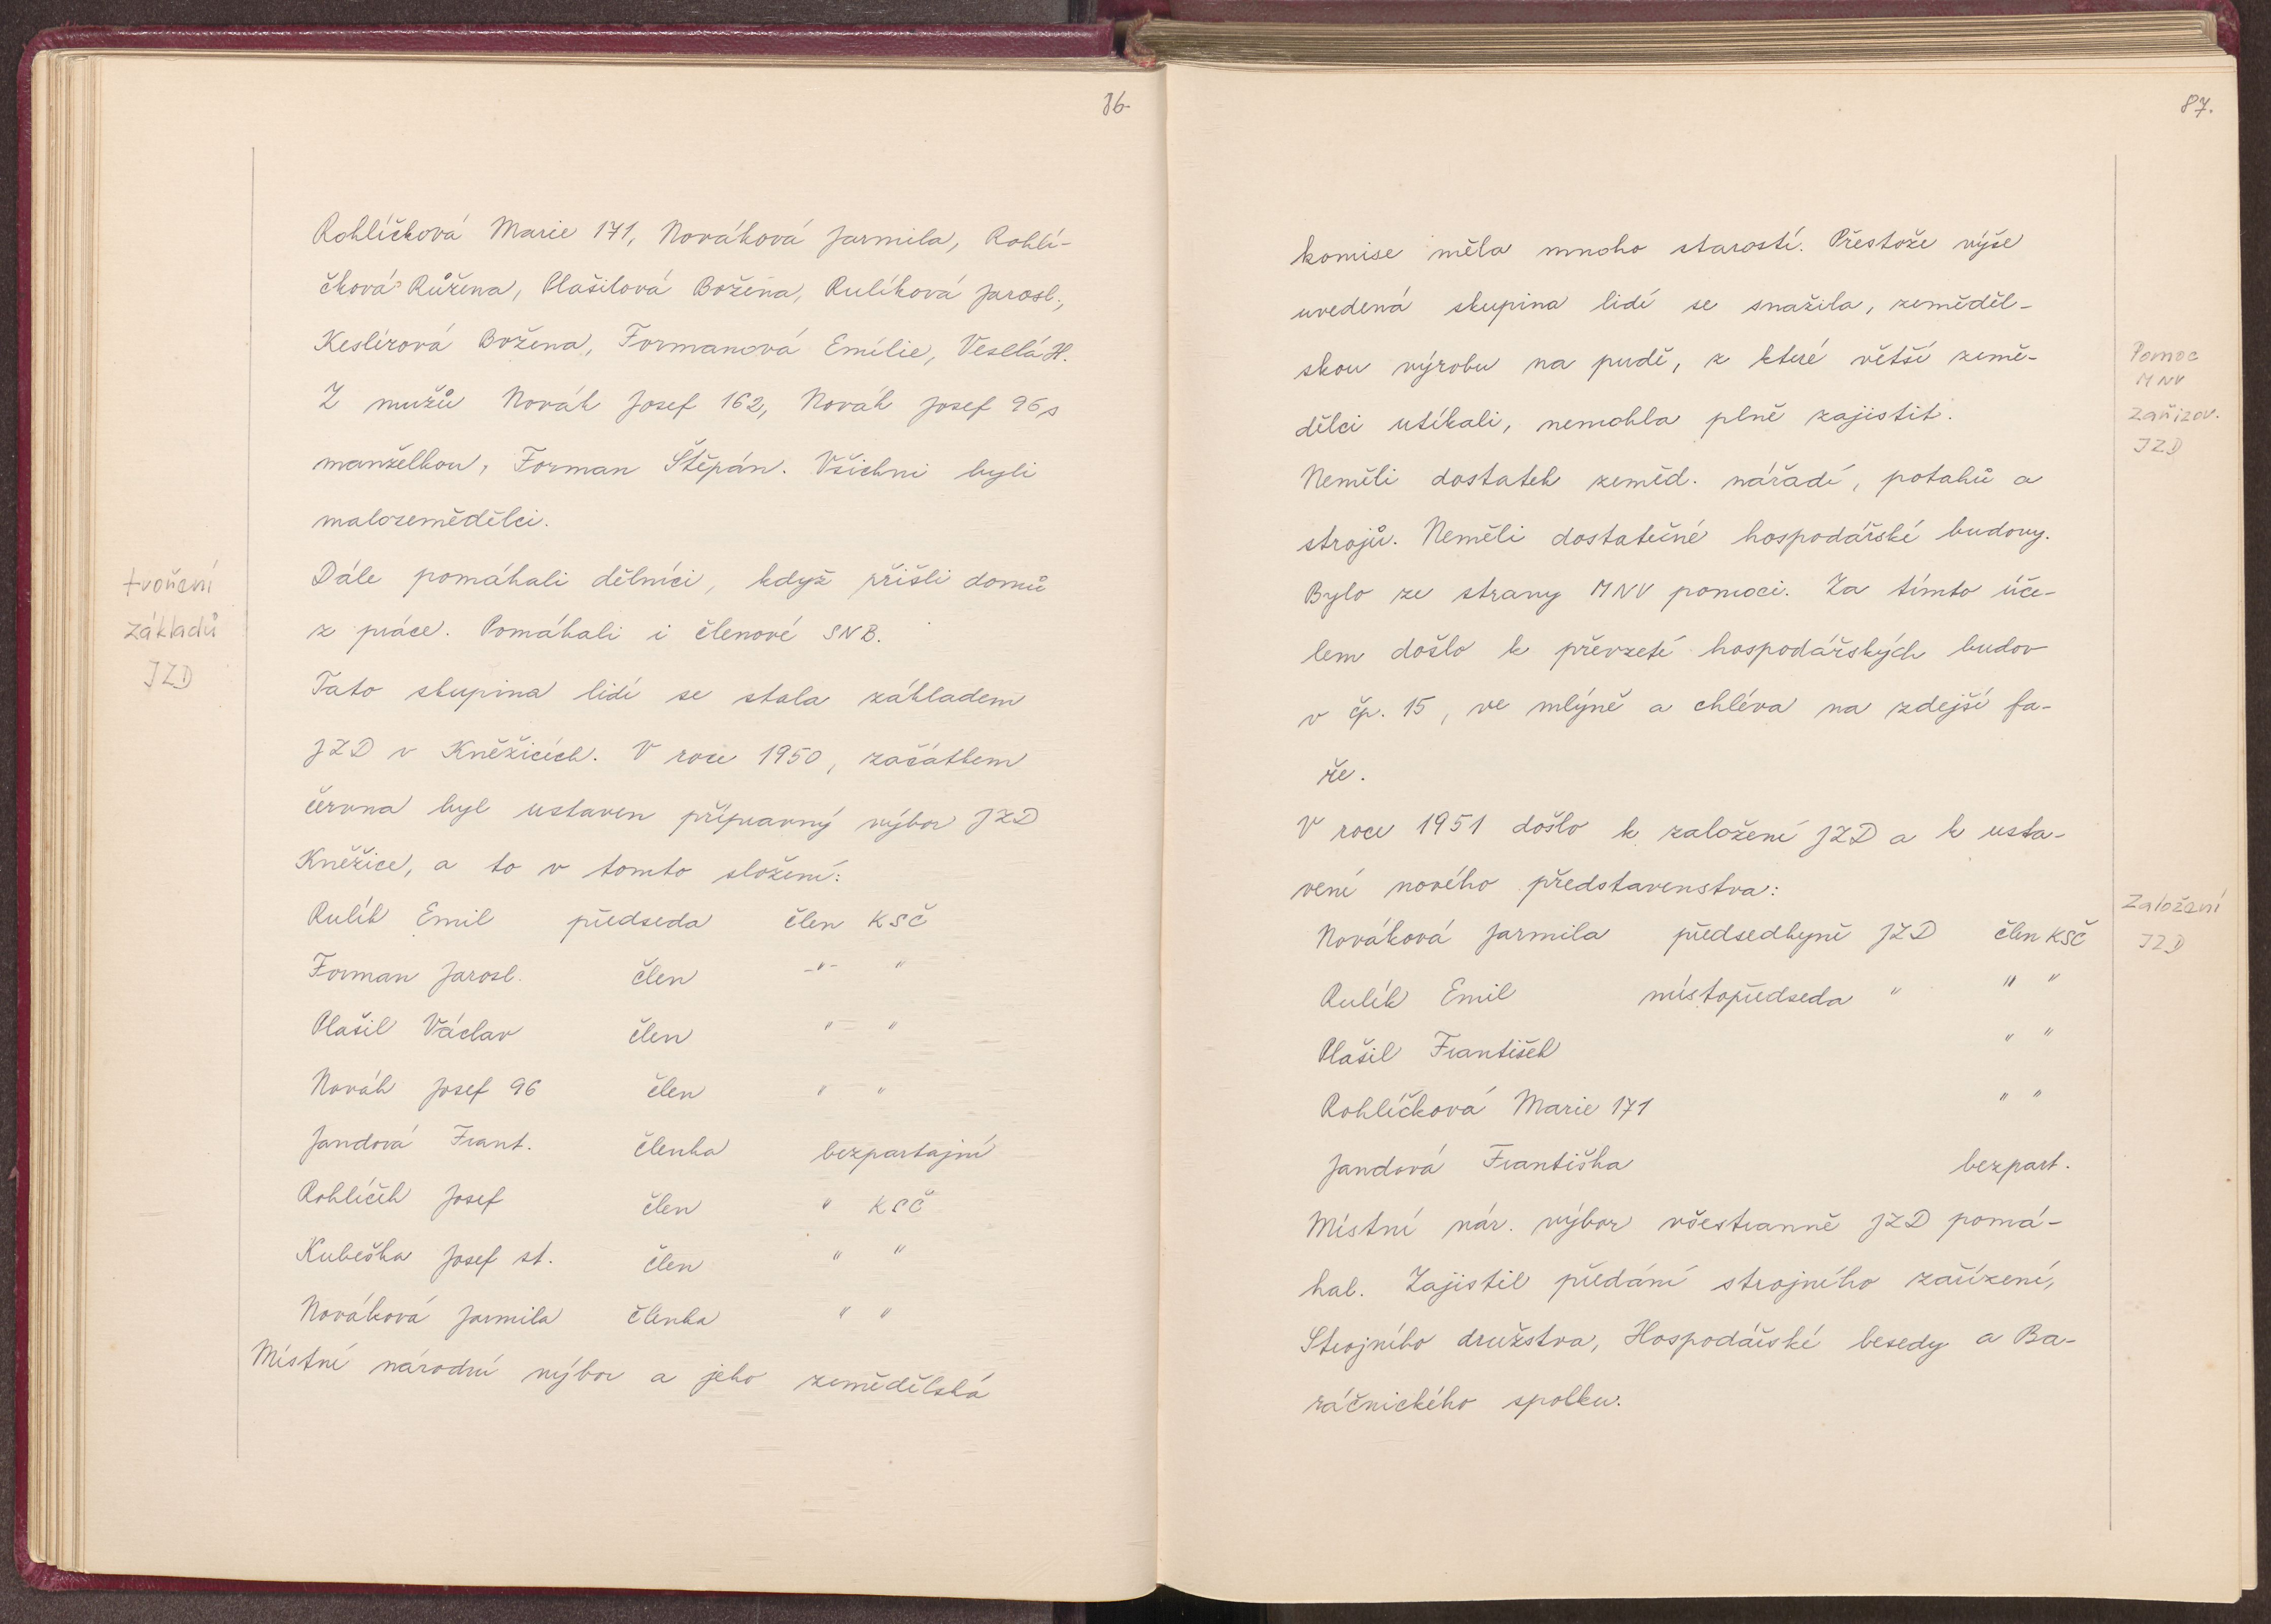 86.
Rohlíčková Marie 171, Nováková Jarmila, Rohlí-
čková Růžena, Plašilová Božena, Rulíková Jarosl.,
Keslírová Božena, Formanová Emílie, Veselá H.
Z mužů Novák Josef 162, Novák Josef 96 s
manželkou, Forman Štěpán. Všichni byli
malozemědělci.
tvoření
základů
JZD
Dále pomáhali dělníci, když přišli domů
z práce. Pomáhali i členové SNB.
Tato skupina lidí se stala základem
JZD v Kněžicích. V roce 1950, začátkem
června byl ustaven přípravný výbor JZD
Kněžice, a to v tomto složení:
Rulík Emil předseda člen KSČ
Forman Jarosl. člen -"- "
Plašil Václav člen " "
Novák Josef 96 člen " "
Jandová Frant. členka bezpartajní
Rohlíček Josef člen " KSČ
Kubeška Josef st. člen " "
Nováková Jarmila členka " "
Místní národní výbor a jeho zemědělská
87.
komise měla mnoho starostí. Přestože výše
uvedená skupina lidí se snažila, zeměděl-
skou výrobu na pudě, z které větší země-
dělci utíkali, nemohla plně zajistit.
Pomoc
MNV
zařizov.
JZD
Neměli dostatek zeměd. nářadí, potahů a
strojů. Neměli dostatečné hospodářské budovy.
Bylo ze strany MNV pomoci. Za tímto úče-
lem došlo k převzetí hospodářských budov
v čp. 15, ve mlýně a chléva na zdejší fa-
ře.
V roce 1951 došlo k založení JZD a k usta-
vení nového představenstva:
Založení
JZD
Nováková Jarmila předsedkyně JZD člen KSČ
Rulík Emil místopředseda " " "
Plašil František " "
Rohlíčková Marie 171 " "
Jandová Františka bezpart.
Místní nár. výbor všestranně JZD pomá-
hal. Zajistil předání strojního zařízení,
Strojního družstva, Hospodářské besedy a Ba-
ráčnického spolku.